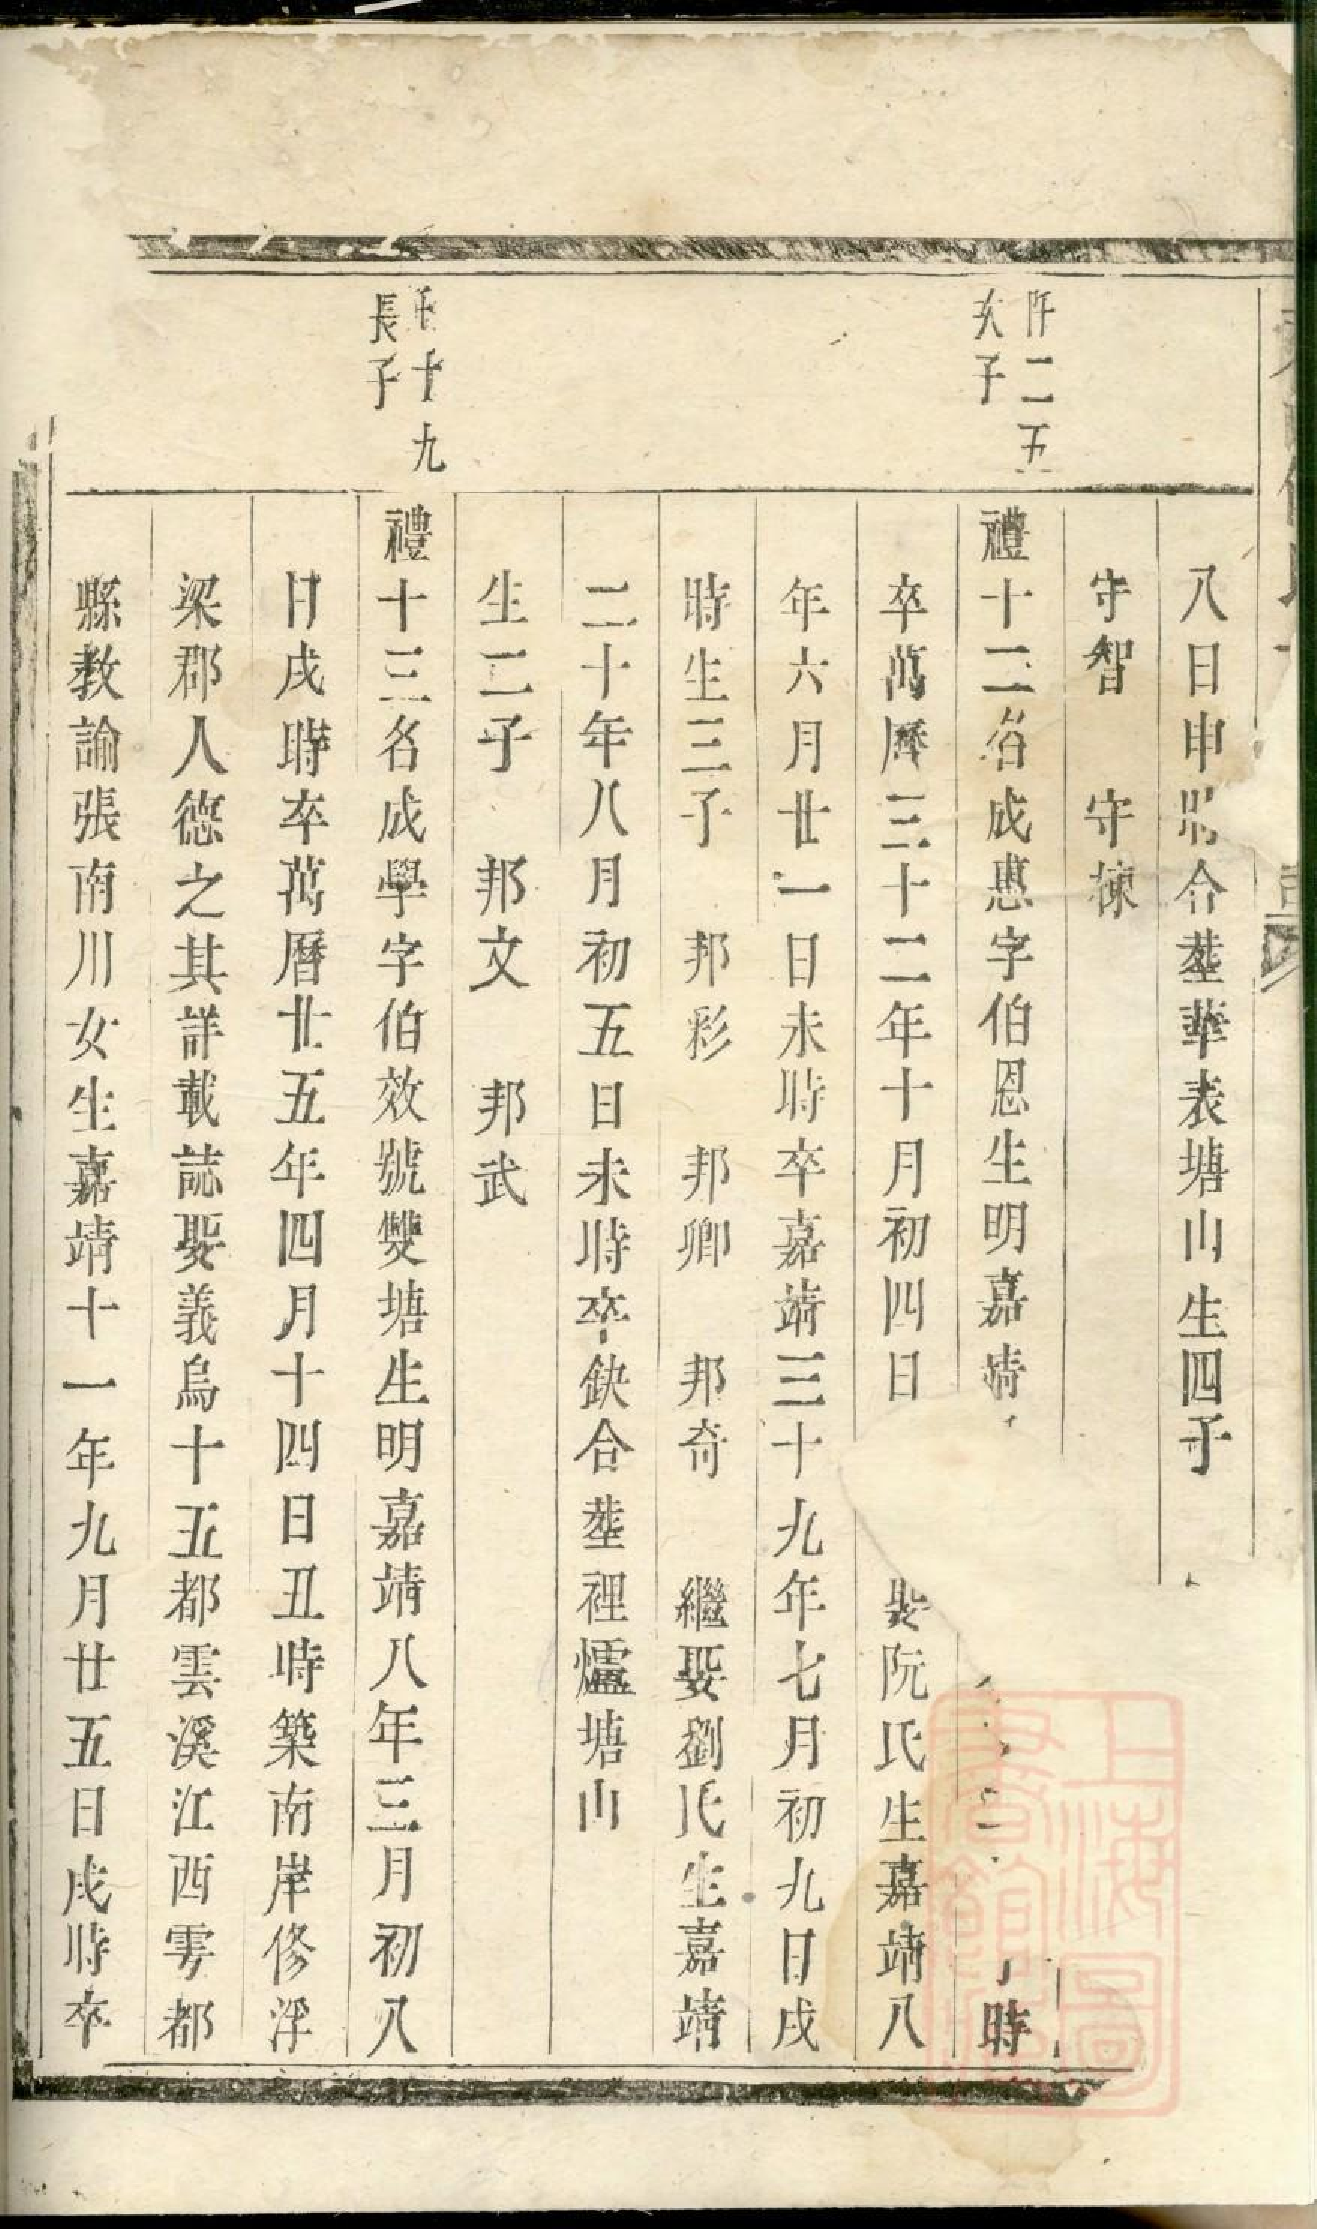 八日申時合塟華表塘山生四子
守智　守棟
二五
次子
禮十二名成惠字伯恩生明嘉靖
時
卒萬曆三十二年十月初四日
娶阮氏生嘉靖八
年六月廿一日未時卒嘉靖三十九年七月初九日戌
時生三子　邦彩　邦卿　邦奇　繼娶劉氏生嘉靖
二十年八月初五日未時卒缺合塟裡爐塘山
生二子　邦文　邦武
十九
長子
禮十三名成學字伯效號雙塘生明嘉靖八年三月初八
日戌時卒萬曆廿五年四月十四日丑時築南岸修浮
梁郡人德之其詳載誌娶義烏十五都雲溪江西雩都
縣教諭張南川女生嘉靖十一年九月廿五日戌時卒
上海圖
書館藏